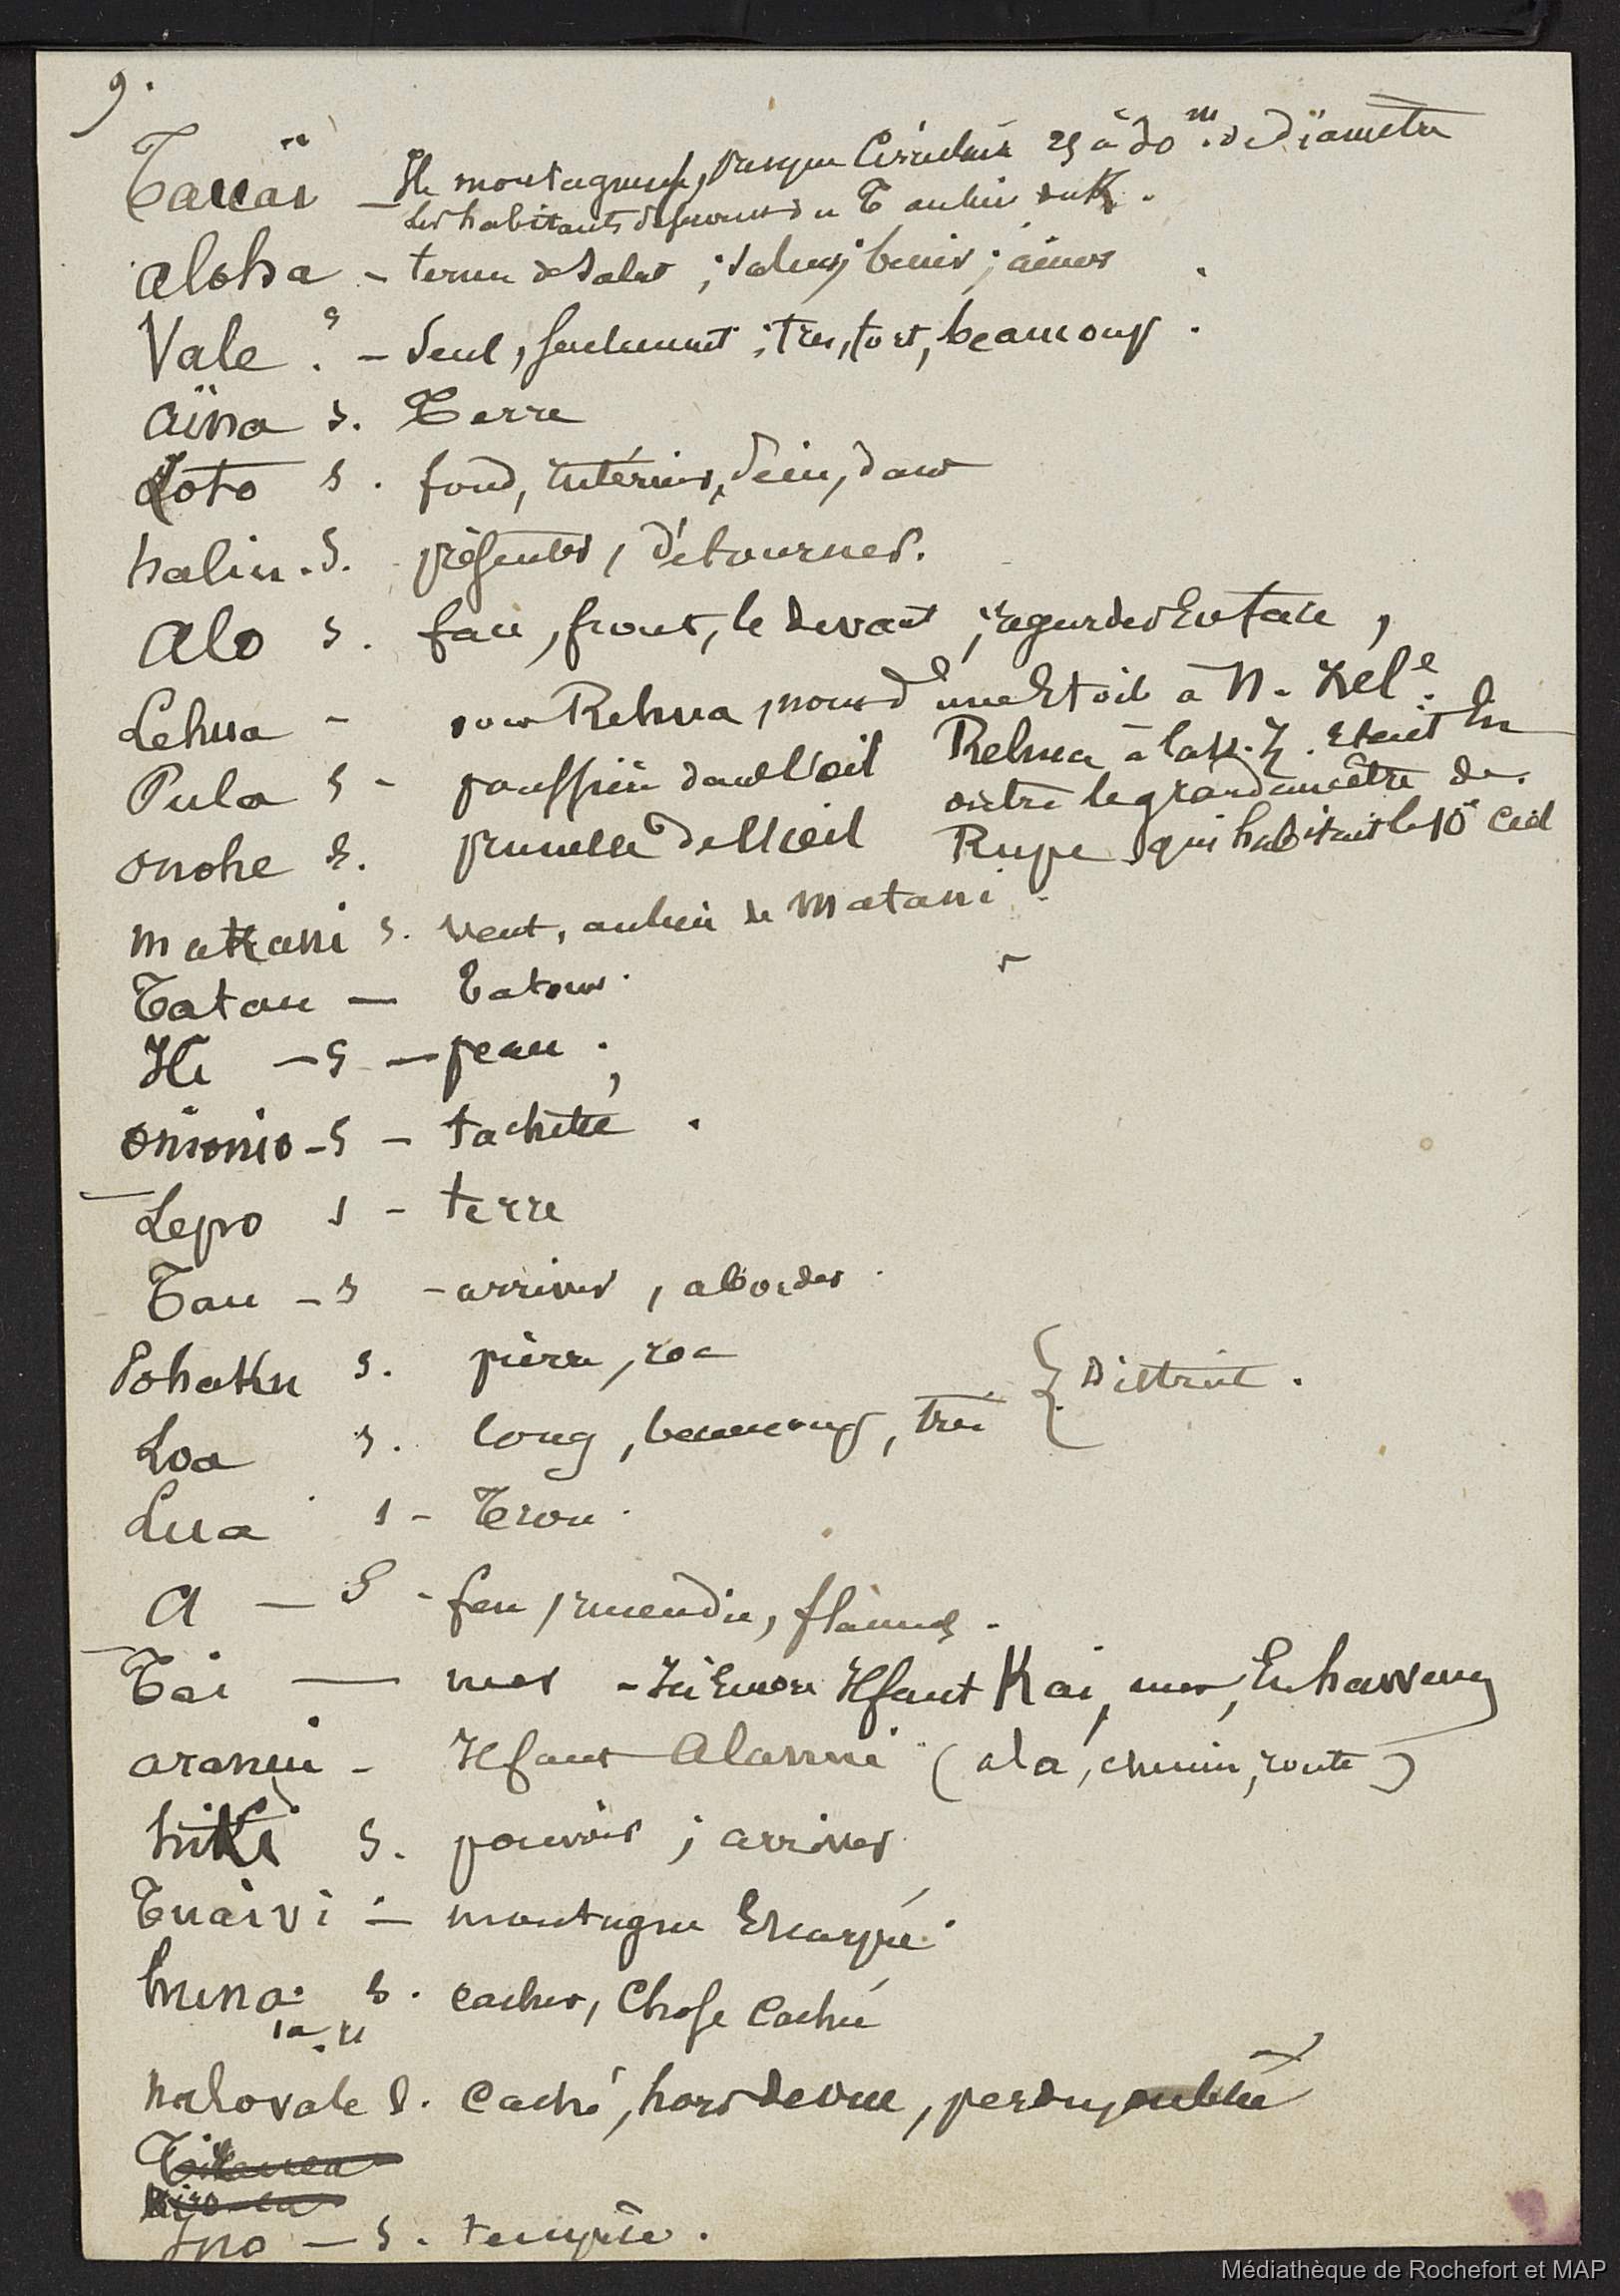 9.
Taüaï – Ile montagneuse, presque Circulaire 25 à 30 m. de Diamètre
Les habitants se servent du T au lieu du K.
Aloha – terme de salut ; saluer, bénir ; aimer
Vale . s – seul, seulement ; très, fort, beaucoup .
Aïna s. Terre
Loto s . fond, intérieur, sein, dans
haliu . S. présenter, détourner.
Alo s . face, front, le devant ; regarder En face ,
Lehua – pour Rehua, nom d'une Etoile à N. Zel e.
Rehua à la N. Z. Etait En
Pula s – poussière dans l'œil
outre le grand ancêtre de
onohe s. prunelle de l'œil
Rupe qui habitait le 10e Ciel
Makani s. vent, au lieu de Matani .
Tatau — Tatouer.
Ili – s – peau .
onionio – s – tacheté .
Lepo s – terre
Tau – s – arriver, aborder .
Pohaku s. pierre, roc
} District .
Loa s. long, beaucoup, très
Lua s – Trou .
A — S – feu, incendie, flamme .
Tai — mer – Ici Encore Il faut Kai, mer, En hawaien
aranui – Il faut Alanui (ala, chemin, route)
hiki s. pouvoir ; arriver
Tuaivi – montagne Escarpée .
huna s . cacher, Chose Cachée
nalovale s. Caché, hors de vue, perdu, oublié
Ino — s. tempête .
Médiathèque de Rochefort et MAP